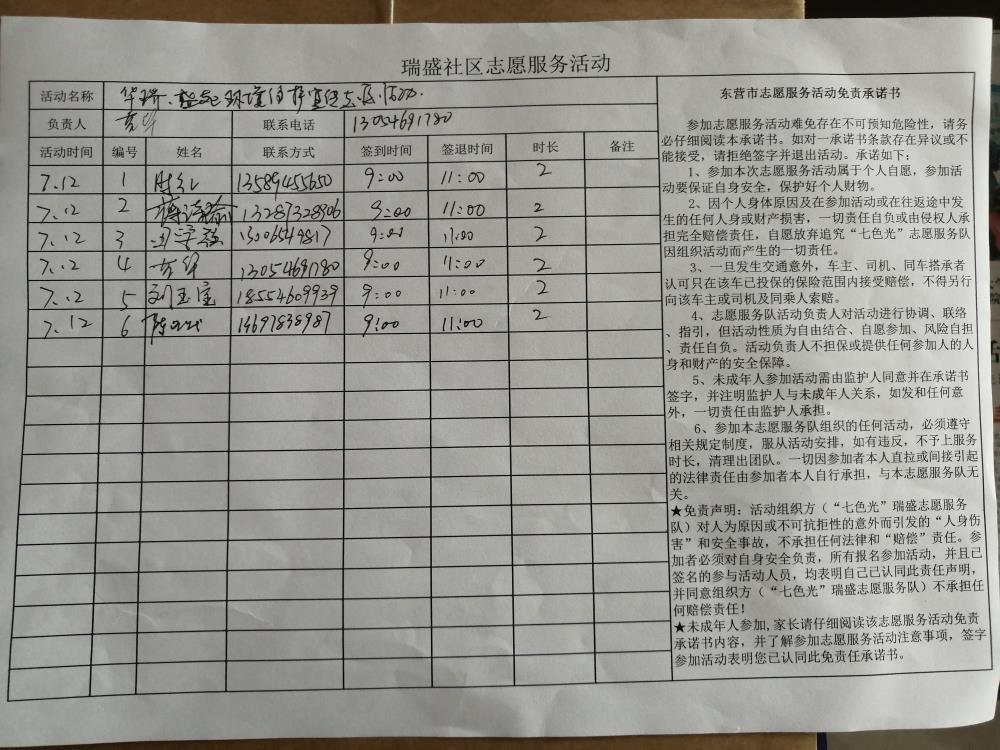 瑞盛社区志愿服务活动
活动名称
负责人 联系电话 13054691780
活动时间 编号 姓名 联系方式 签到时间 签退时间 时长 备注
7.12 1 13589455650 9:00 11:00 2
7.12 2 13287328906 9:00 11:00 2
7.12 3 13006549817 9:00 11:00 2
7.12 4 13054691780 9:00 11:00 2
7.12 5 刘玉宝 18554609939 9:00 11:00 2
7.12 6 9:00 11:00 2
东营市志愿服务活动免责承诺书
参加志愿服务活动难免存在不可预知危险性，请务
必仔细阅读本承诺书。如对一承诺书条款存在异议或不
能接受，请拒绝签字并退出活动。承诺如下：
1、参加本次志愿服务活动属于个人自愿，参加活
动要保证自身安全，保护好个人财物。
2、因个人身体原因及在参加活动或在往返途中发
生的任何人身或财产损害，一切责任自负或由侵权人承
担完全赔偿责任，自愿放弃追究“七色光”志愿服务队
因组织活动而产生的一切责任。
3、一旦发生交通意外，车主、司机、同车搭承者
认可只在该车已投保的保险范围内接受赔偿，不得另行
向该车主或司机及同乘人索赔。
4、志愿服务队活动负责人对活动进行协调、联络
、指引，但活动性质为自由结合、自愿参加、风险自担
、责任自负。活动负责人不担保或提供任何参加人的人
身和财产的安全保障。
5、未成年人参加活动需由监护人同意并在承诺书
签字，并注明监护人与未成年人关系，如发和任何意
外，一切责任由监护人承担。
6、参加本志愿服务队组织的任何活动，必须遵守
相关规定制度，服从活动安排，如有违反，不予上服务
时长，清理出团队。一切因参加者本人直拉或间接引起
的法律责任由参加者本人自行承担，与本志愿服务队无
关。
★免责声明：活动组织方（“七色光”瑞盛志愿服务
队）对人为原因或不可抗拒性的意外而引发的“人身伤
害”和安全事故，不承担任何法律和“赔偿”责任。参
加者必须对自身安全负责，所有报名参加活动，并且已
签名的参与活动人员，均表明自己已认同此责任声明，
并同意组织方（“七色光”瑞盛志愿服务队）不承担任
何赔偿责任！
★未成年人参加，家长请仔细阅读该志愿服务活动免责
承诺书内容，并了解参加志愿服务活动注意事项，签字
参加活动表明您已认同此免责任承诺书。